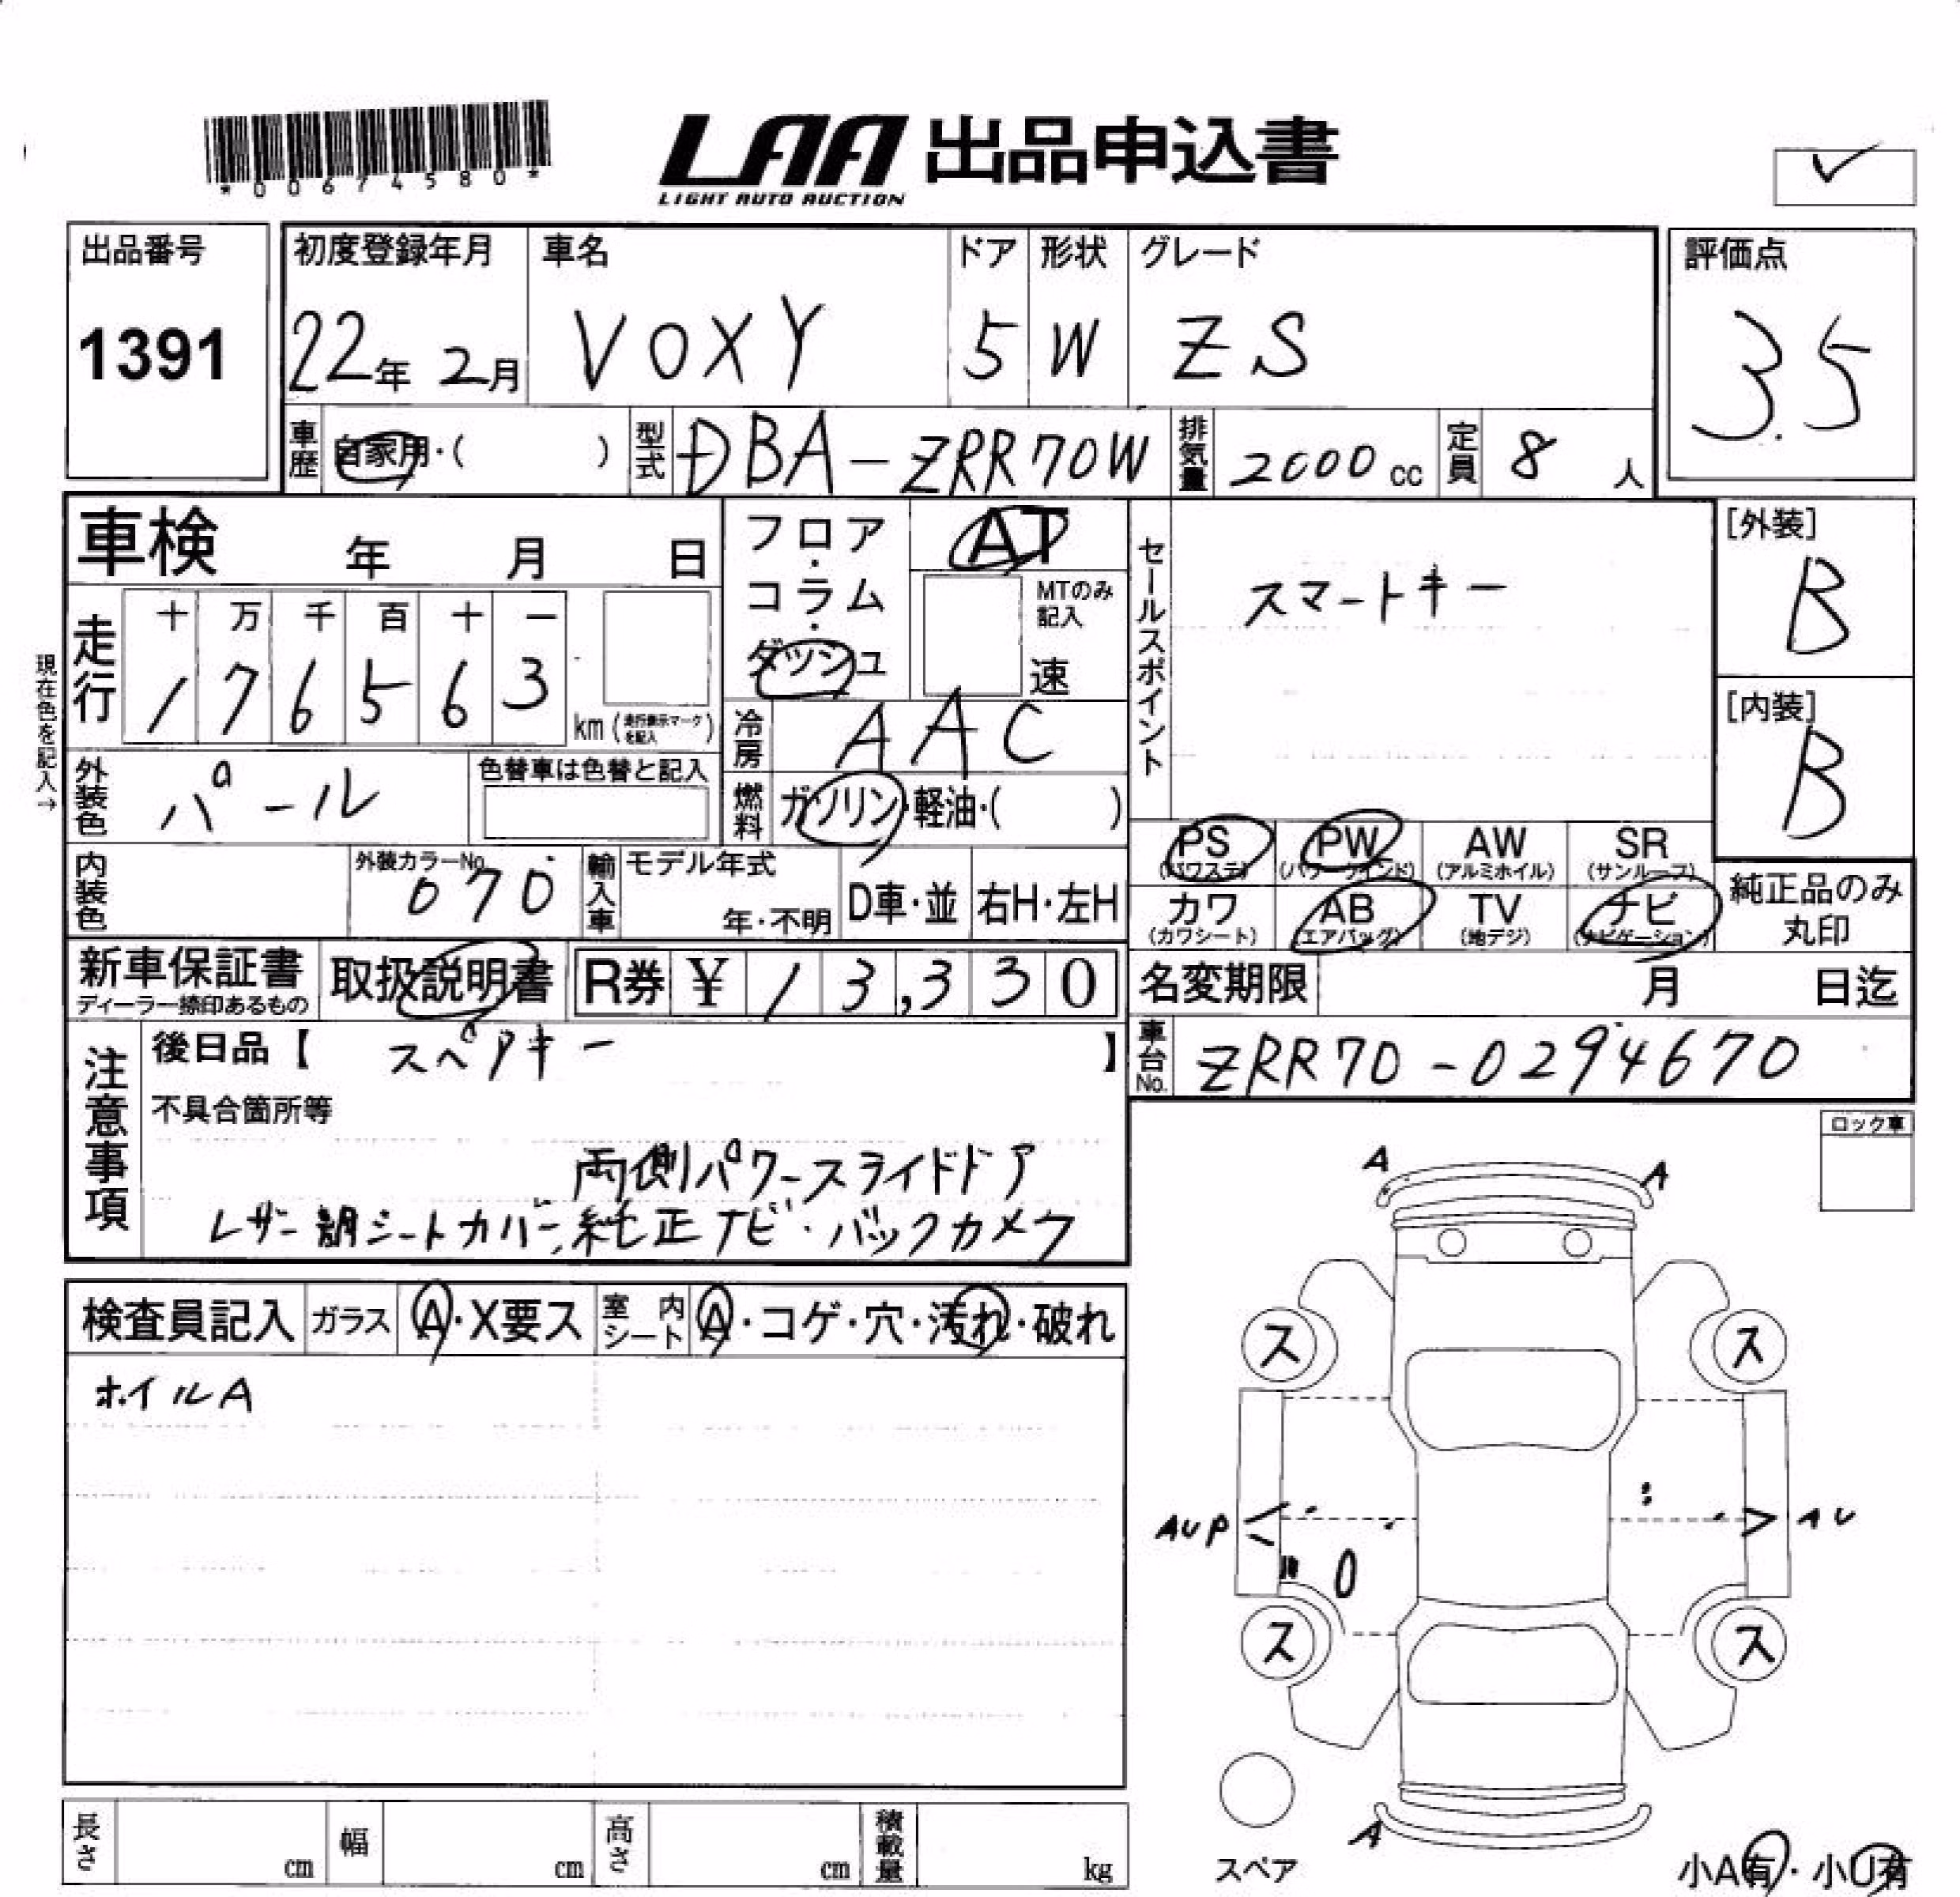 *00674580*
LAA 出品申込書
LIGHT AUTO AUCTION
出品番号
1391
初度登録年月
22年 2月
車名
VOXY
ドア
5
形状
W
グレード
ZS
評価点
3.5
車歴
自家用・( )
型式
DBA-ZRR70W
排気量
2000 cc
定員
8 人
車検 年 月 日
フロア・コラム・ダッシュ
AT
MTのみ記入
速
セールスポイント
スマートキー
[外装]
B
[内装]
B
現在色を記入→
走行
十 万 千 百 十 一
1 7 6 5 6 3
km (走行表示マークを記入)
冷房
AAC
外装色
パール
色替車は色替と記入
燃料
ガソリン・軽油・( )
内装色
外装カラーNo.
070
輸入車
モデル年式
年・不明
D車・並
右H・左H
PS
(パワステ)
PW
(パワーウインド)
AW
(アルミホイル)
SR
(サンルーフ)
カワ
(カワシート)
AB
(エアバッグ)
TV
(地デジ)
ナビ
(ナビゲーション)
純正品のみ
丸印
新車保証書
ディーラー捺印あるもの
取扱説明書
R券 ¥ 13,330
名変期限 月 日迄
車台No.
ZRR70-0294670
注意事項
後日品【 スペアキー 】
不具合箇所等
両側パワースライドドア
レザー調シートカバー,純正ナビ・バックカメラ
ロック車
検査員記入
ガラス
A・X要ス
室内シート
A・コゲ・穴・汚れ・破れ
ホイルA
A
A
ス
ス
AUP
AU
ス
ス
A
スペア
小A有・小U有
長さ cm
幅 cm
高さ cm
積載量 kg